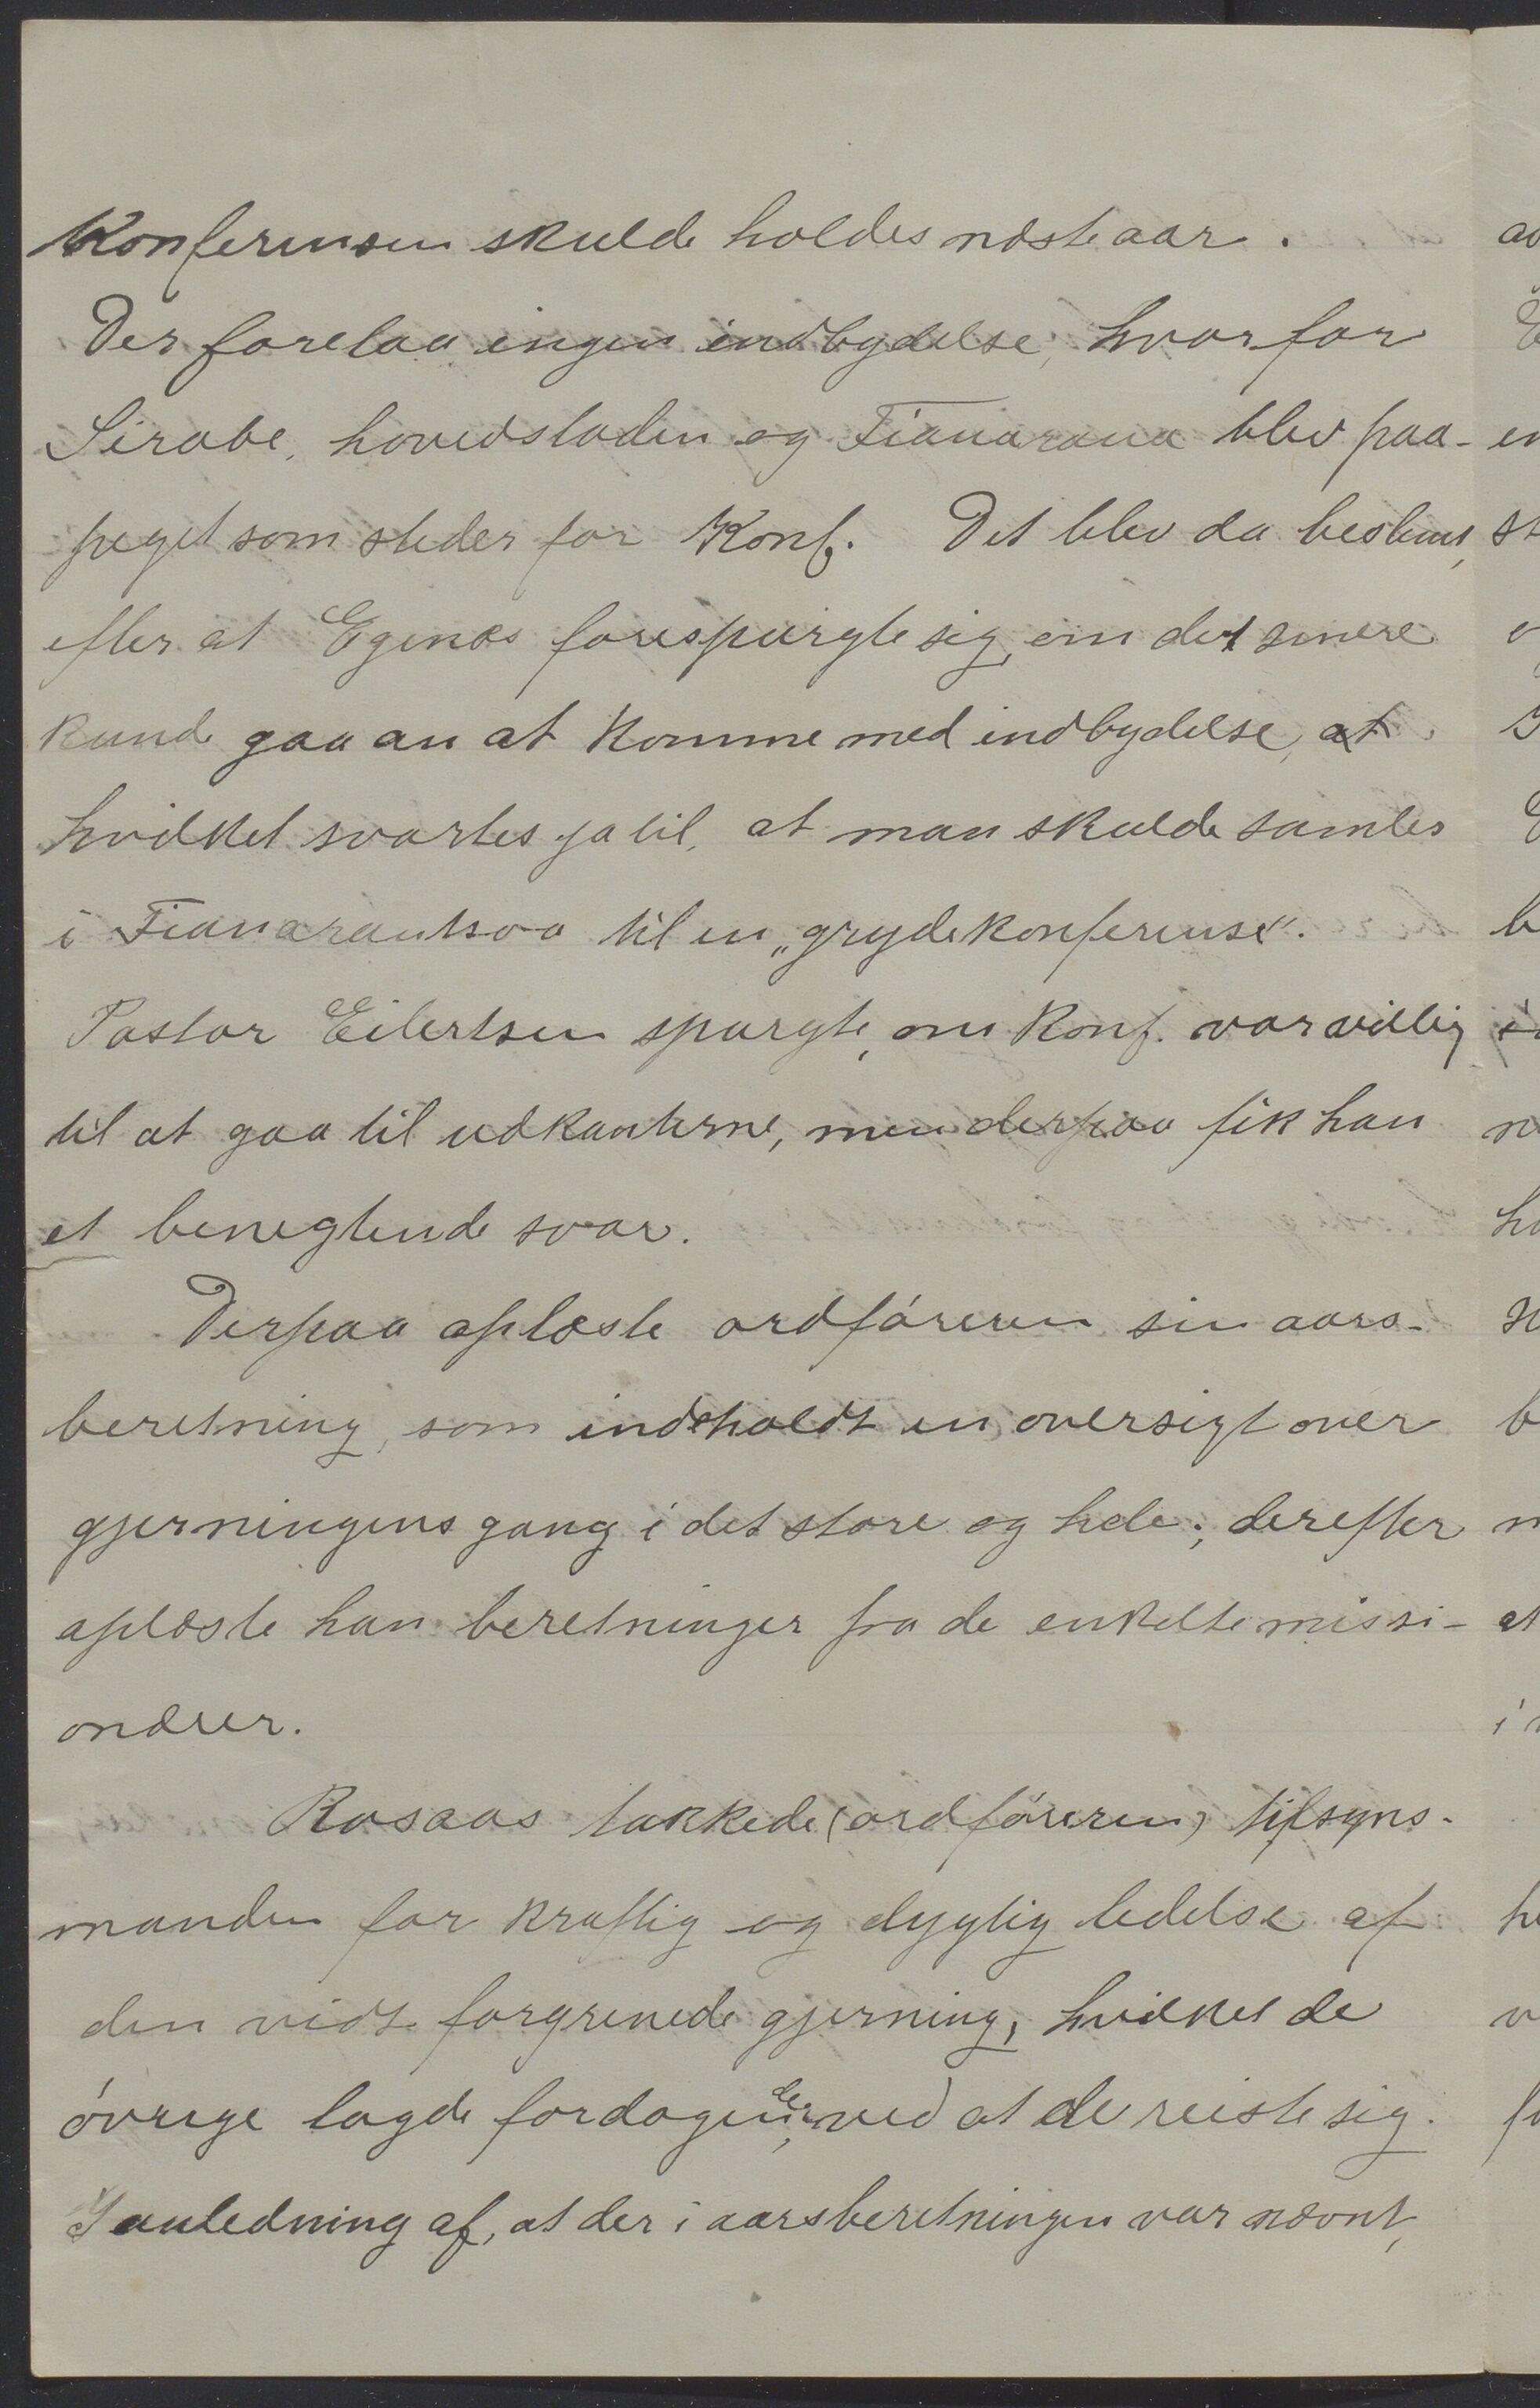 Konferensen skulde holdes næste aar.
Der forelaa ingen indbydelse, hvorfor
Sirabe, hovedstaden og Fianarana blev paa-
peget som steder for Konf. Det blev da bestemt,
efter at Egenæs forespurgte sig, om det senere
kunde gaa an at komme med indbydelse, at
hvilket svartes ja til, at man skulde samles
i Fianarantsoa til en „grydekonferense".
Pastor Eilertsen spurgte, om Konf. var villig
til at gaa til udkanterne, men derpaa fik han
et benegtende svar.
Derpaa oplæste ordføreren sin aars-
beretning, som indeholdt en oversigt over
gjerningens gang i det store og hele; derefter
oplæste han beretninger fra de enkelte missi-
onærer.
Rosaas takkede (ordføreren) tilsyns-
manden for kraftig og dygtig ledelse af
den vidt forgrenede gjerning, hvilket de
øvrige lagde for dagen, ved at de reiste sig.
I anledning af, at der i aarsberetningen var nævnt,